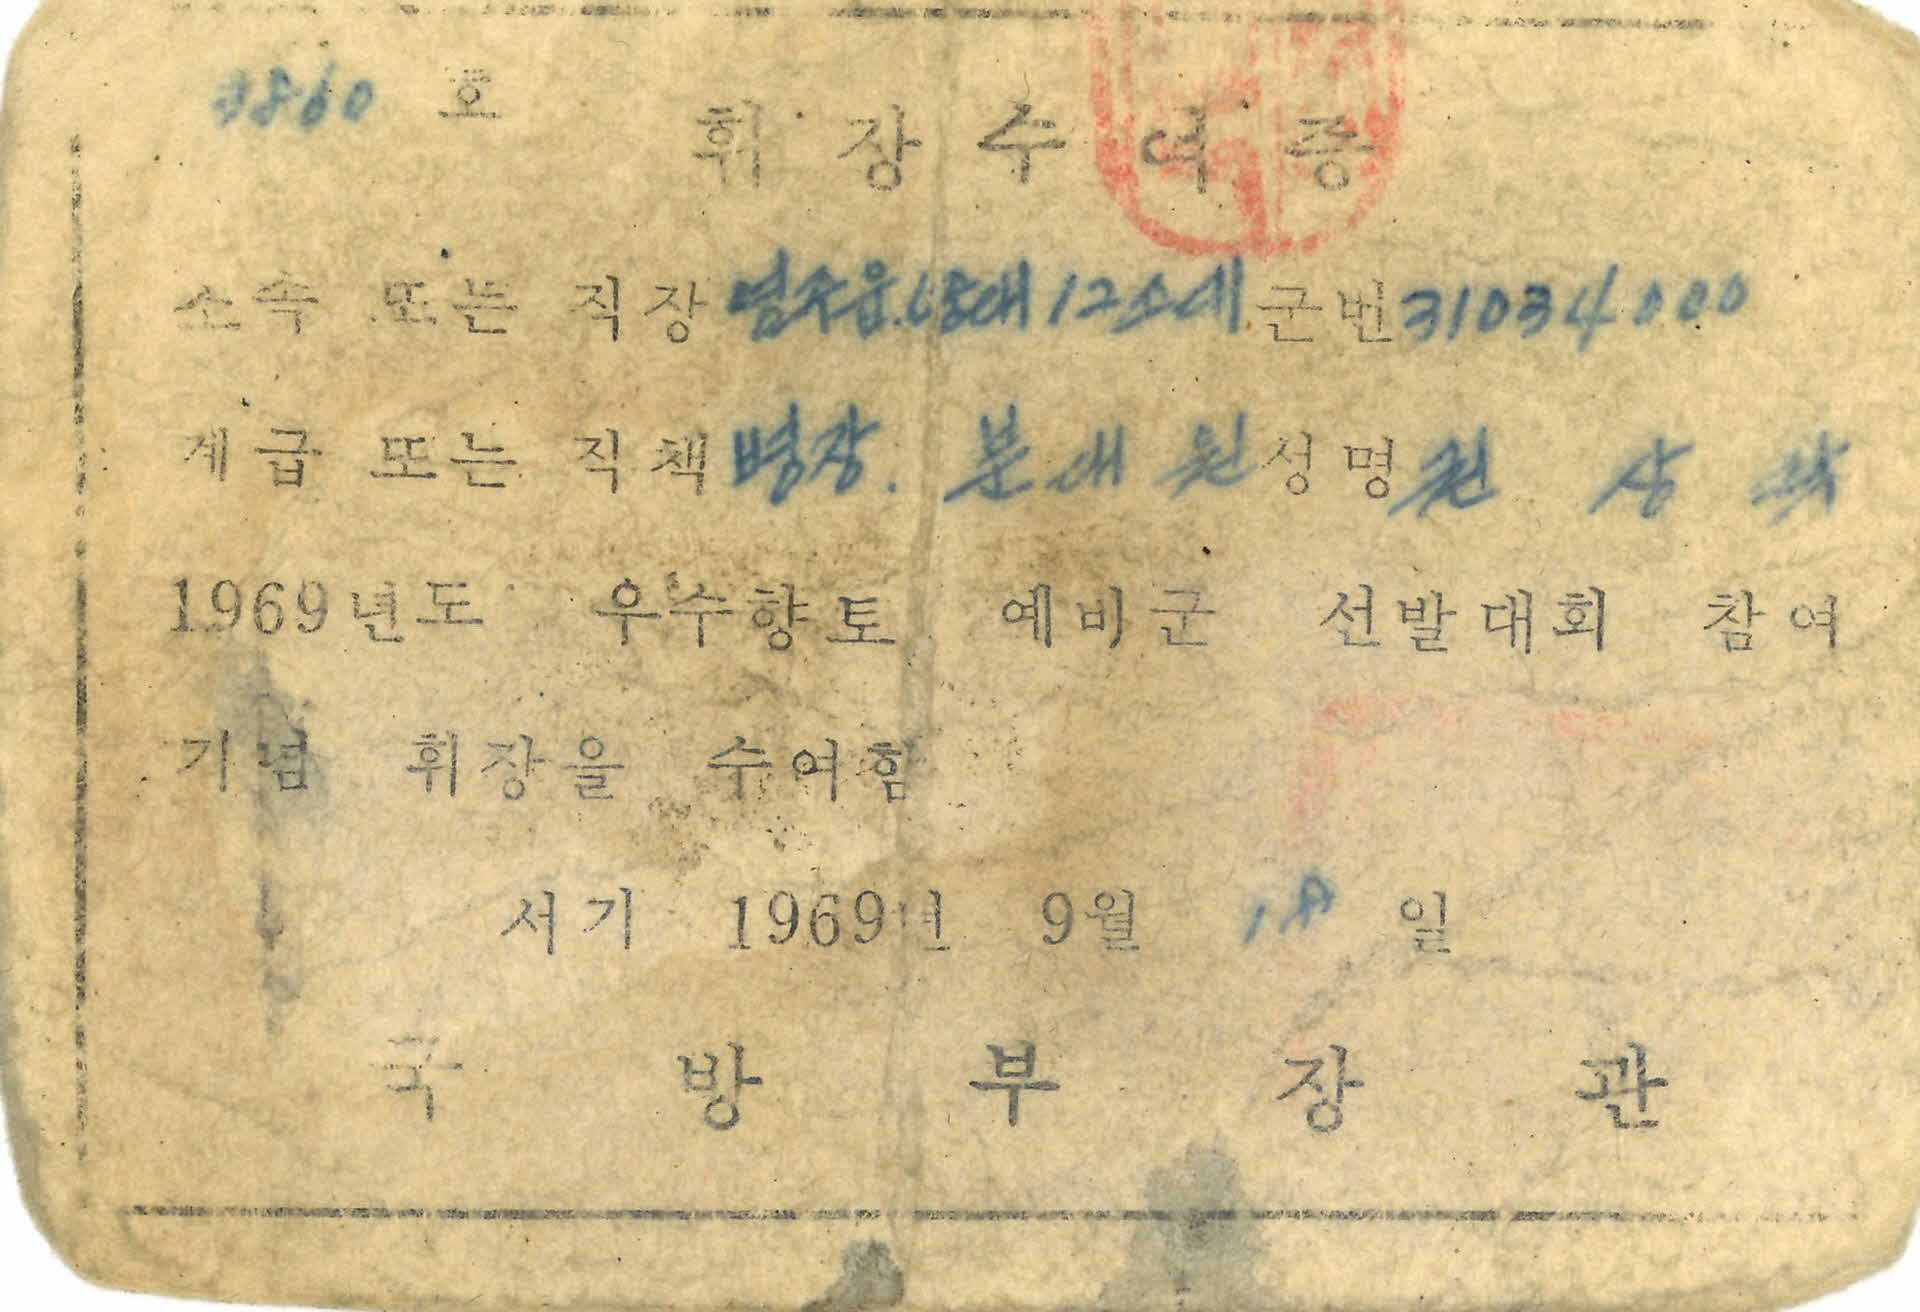 3860 호
휘장수여증
소속 또는 직장 12소대 군번 31034000
계급 또는 직책 병장. 분대원 성명 권 상
1969년도 우수향토 예비군 선발대회 참여
기념 휘장을 수여함
서기 1969년 9월 18 일
국방부장관